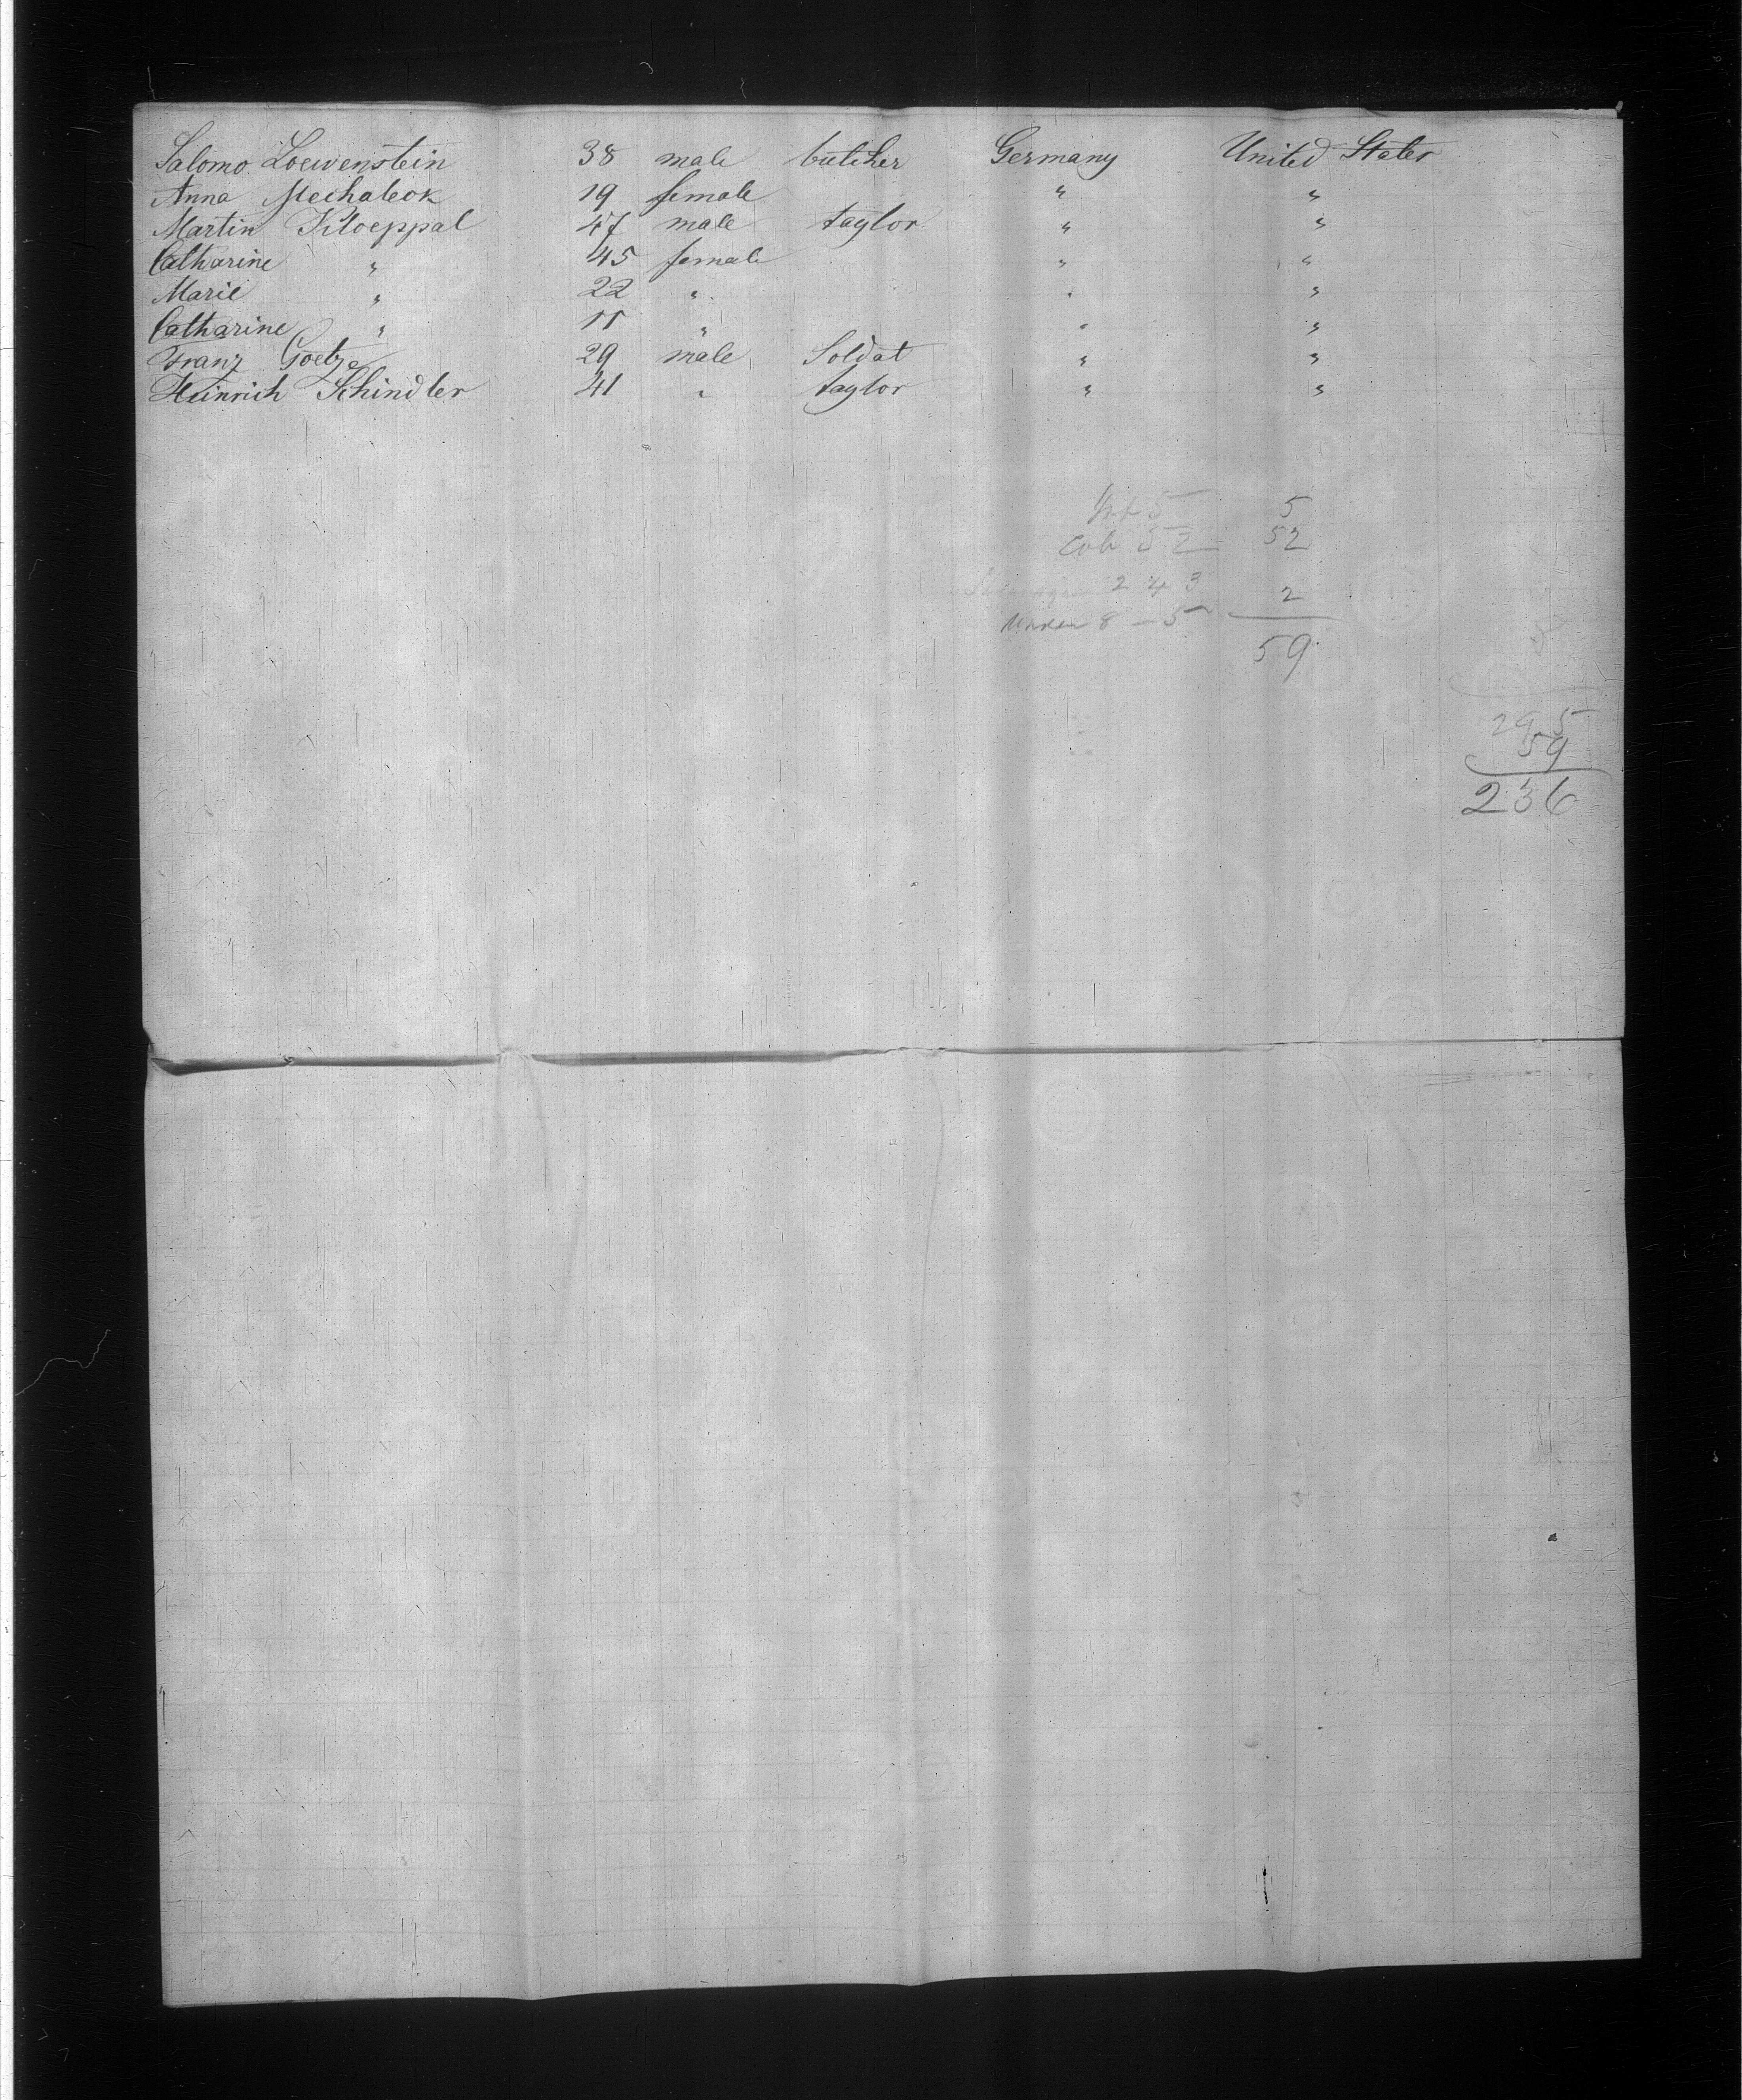 Salomo Loewenstein 38 male butcher Germany United States
Anna Mechaleck 19 female " "
Martin Kloeppal 47 male taylor " "
Catharine " 45 female " "
Marie " 22 " " "
Catharine " 11 " " "
Franz Goetze 29 male Soldat " "
Heinrich Schindler 41 " taylor " "
Inf 5 5
Cab 52 52
243 2
Under 8 – 5
59
8
295
59
236